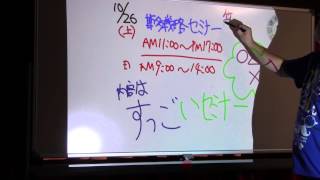 10/26
(土)
セミナー
AM11:00～PM17:00
AM9:00～14:00
内容は
すっご
いセミナー